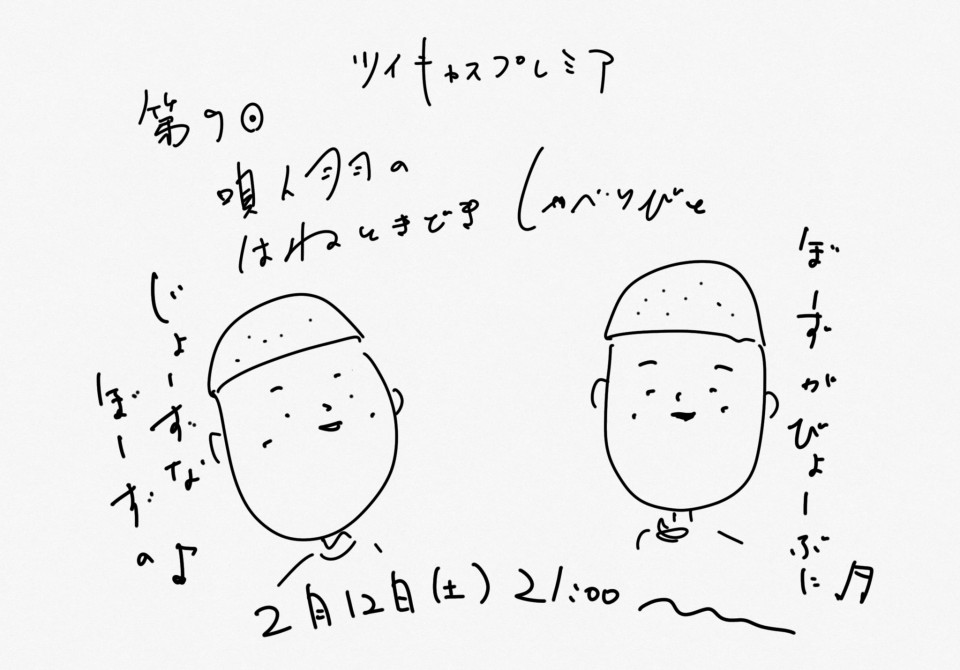 ツイキャスプレミア
第9回
唄人羽の
はねときどき しゃべりびと
じょーずな
ぼーずの♪
ぼーずがびょーぶに♬
2月12日(土) 21:00〜